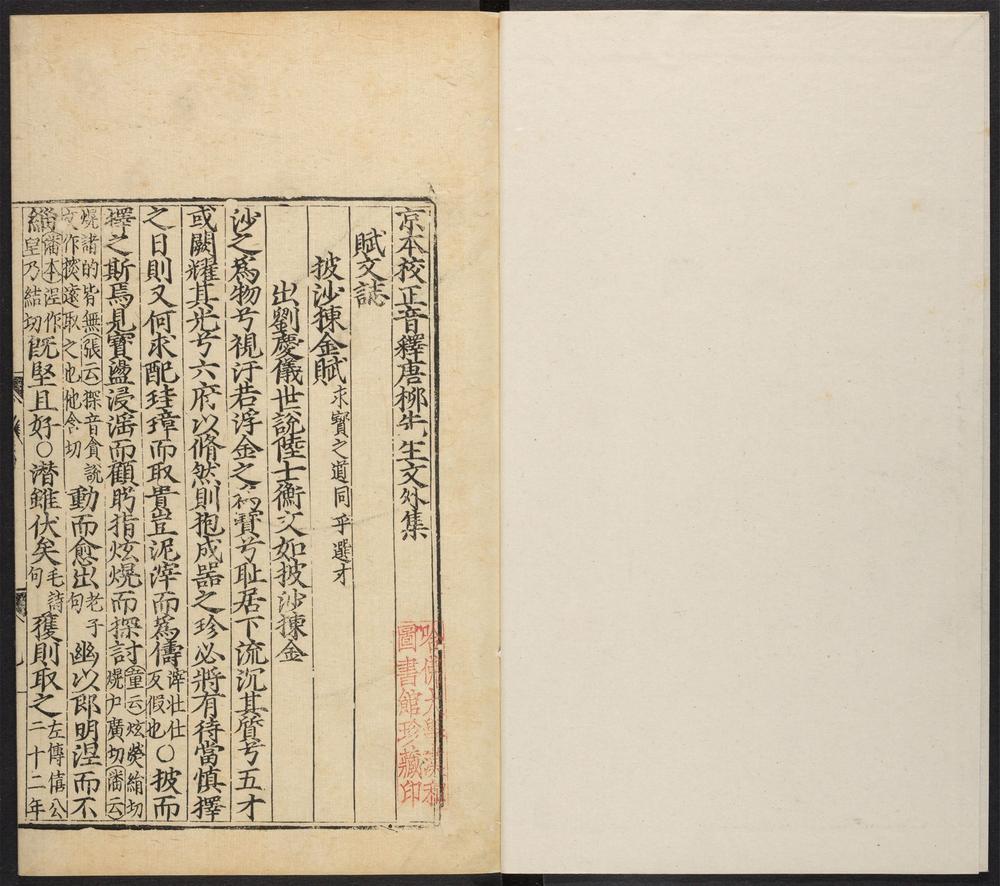 京本校正音釋唐柳先生文外集
賦文誌
披沙揀金賦求寳之道同乎選才
出劉慶儀世說陸士衡文如披沙揀金
沙之為物兮視汙若浮金之為寳兮耻居下流沉其質兮五才
或闕耀其光兮六府以脩然則抱成器之珍必將有待當慎擇
之日則又何求配珪璋而取貴豈泥滓而為儔滓壮仕反假也〇披而
擇之斯焉見寳盪浸淫而顧眄指炫熀而探討童云炫熒絹切熀户廣切潘云
熀諸的皆無張云探音貪說文作撢遠取之也他含切動而愈出老子句幽以即明涅而不
緇潘本涅作皇乃結切旣堅且好〇潜雖伏矣毛詩句獲則取之左傳僖公二十二年
哈佛大學漢和
圖書館珍藏印